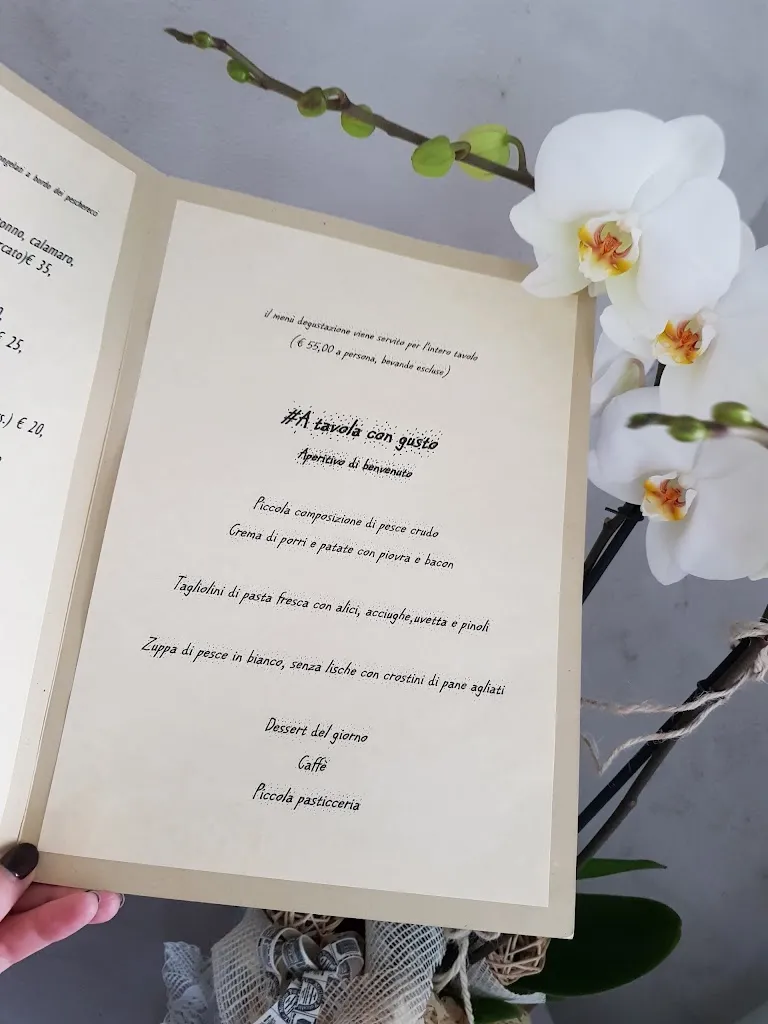 ongelati a bordo dei pescherecci
tonno, calamaro,
rcato)€ 35,
€ 25,
s.) € 20,
il menù degustazione viene servito per l'intero tavolo
(€ 55,00 a persona, bevande escluse)
#A tavola con gusto
Aperitivo di benvenuto
Piccola composizione di pesce crudo
Crema di porri e patate con piovra e bacon
Tagliolini di pasta fresca con alici, acciughe,uvetta e pinoli
Zuppa di pesce in bianco, senza lische con crostini di pane agliati
Dessert del giorno
Caffè
Piccola pasticceria